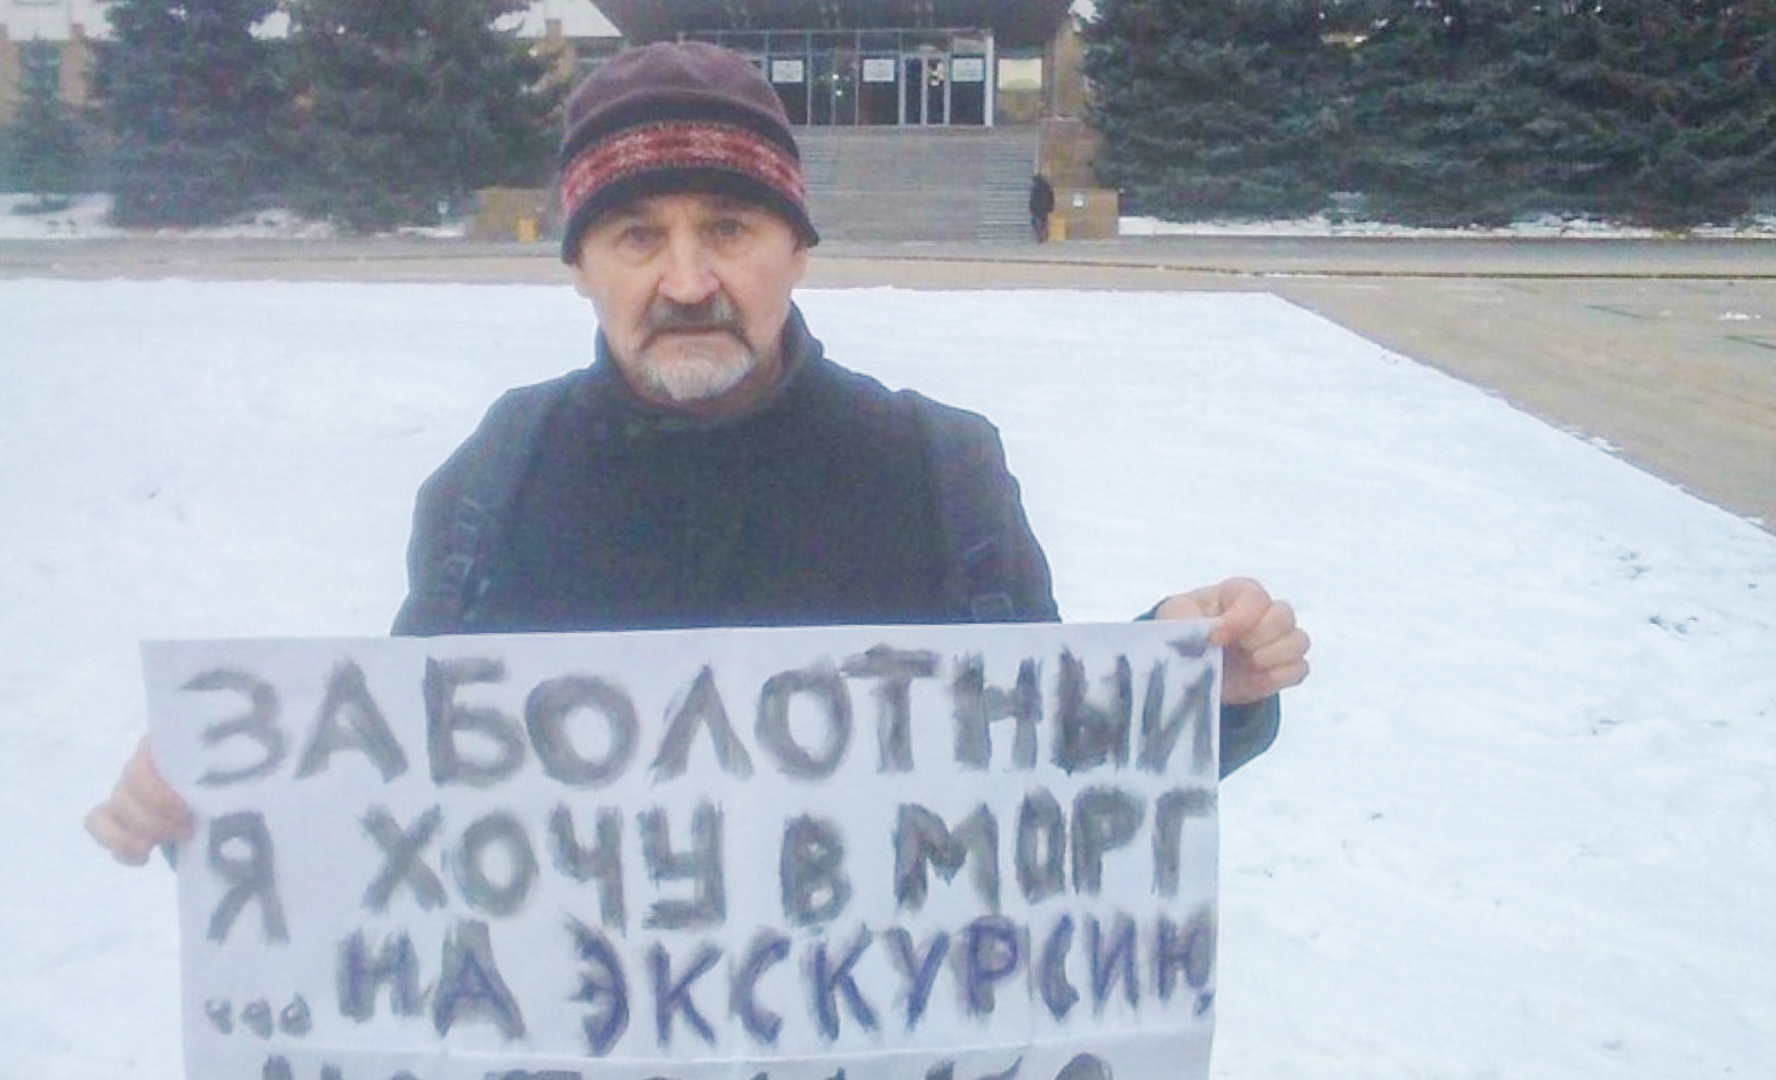 ЗАБОЛОТНЫЙ
Я ХОЧУ В МОРГ
... НА ЭКСКУРСИЮ,